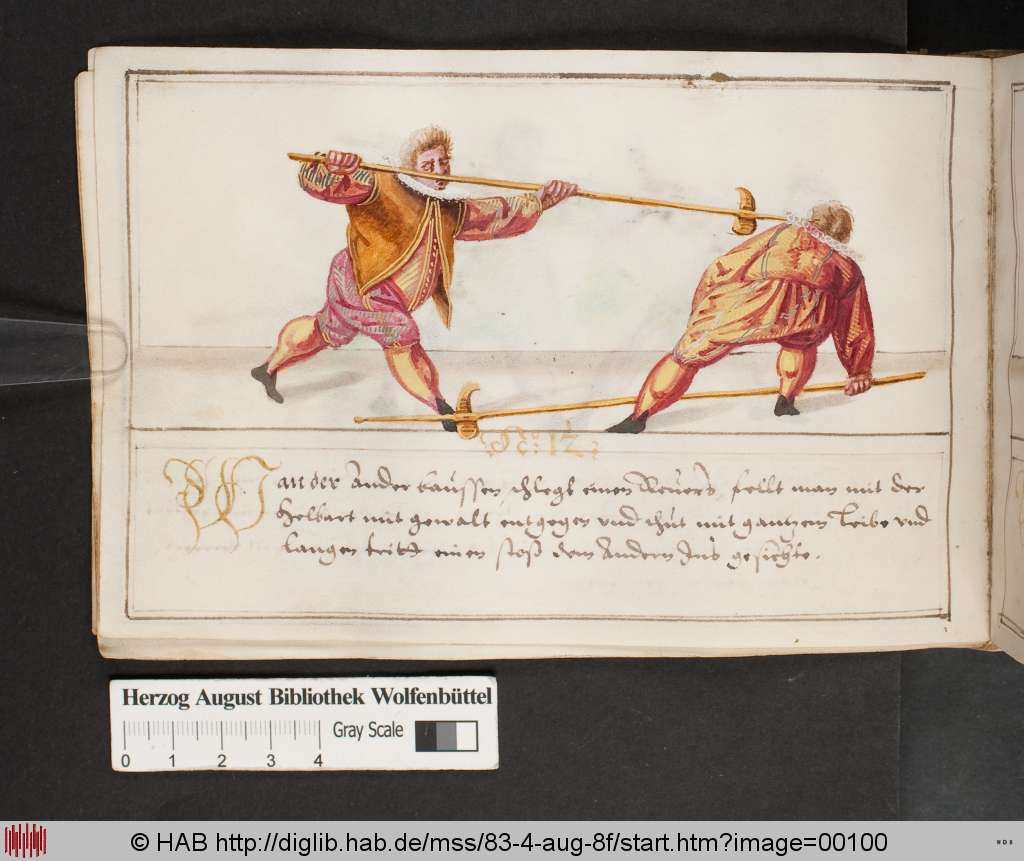 N: 12:
Wan der Ander baussen schlegt einen Reuers, fellt man mit der
Helbart mit gewalt entgegen vnd thut mit gantzem Leibe vnd
langen tritt einen stoß dem Andern Ins gesichte.
Herzog August Bibliothek Wolfenbüttel
Gray Scale
0 1 2 3 4
© HAB http://diglib.hab.de/mss/83-4-aug-8f/start.htm?image=00100